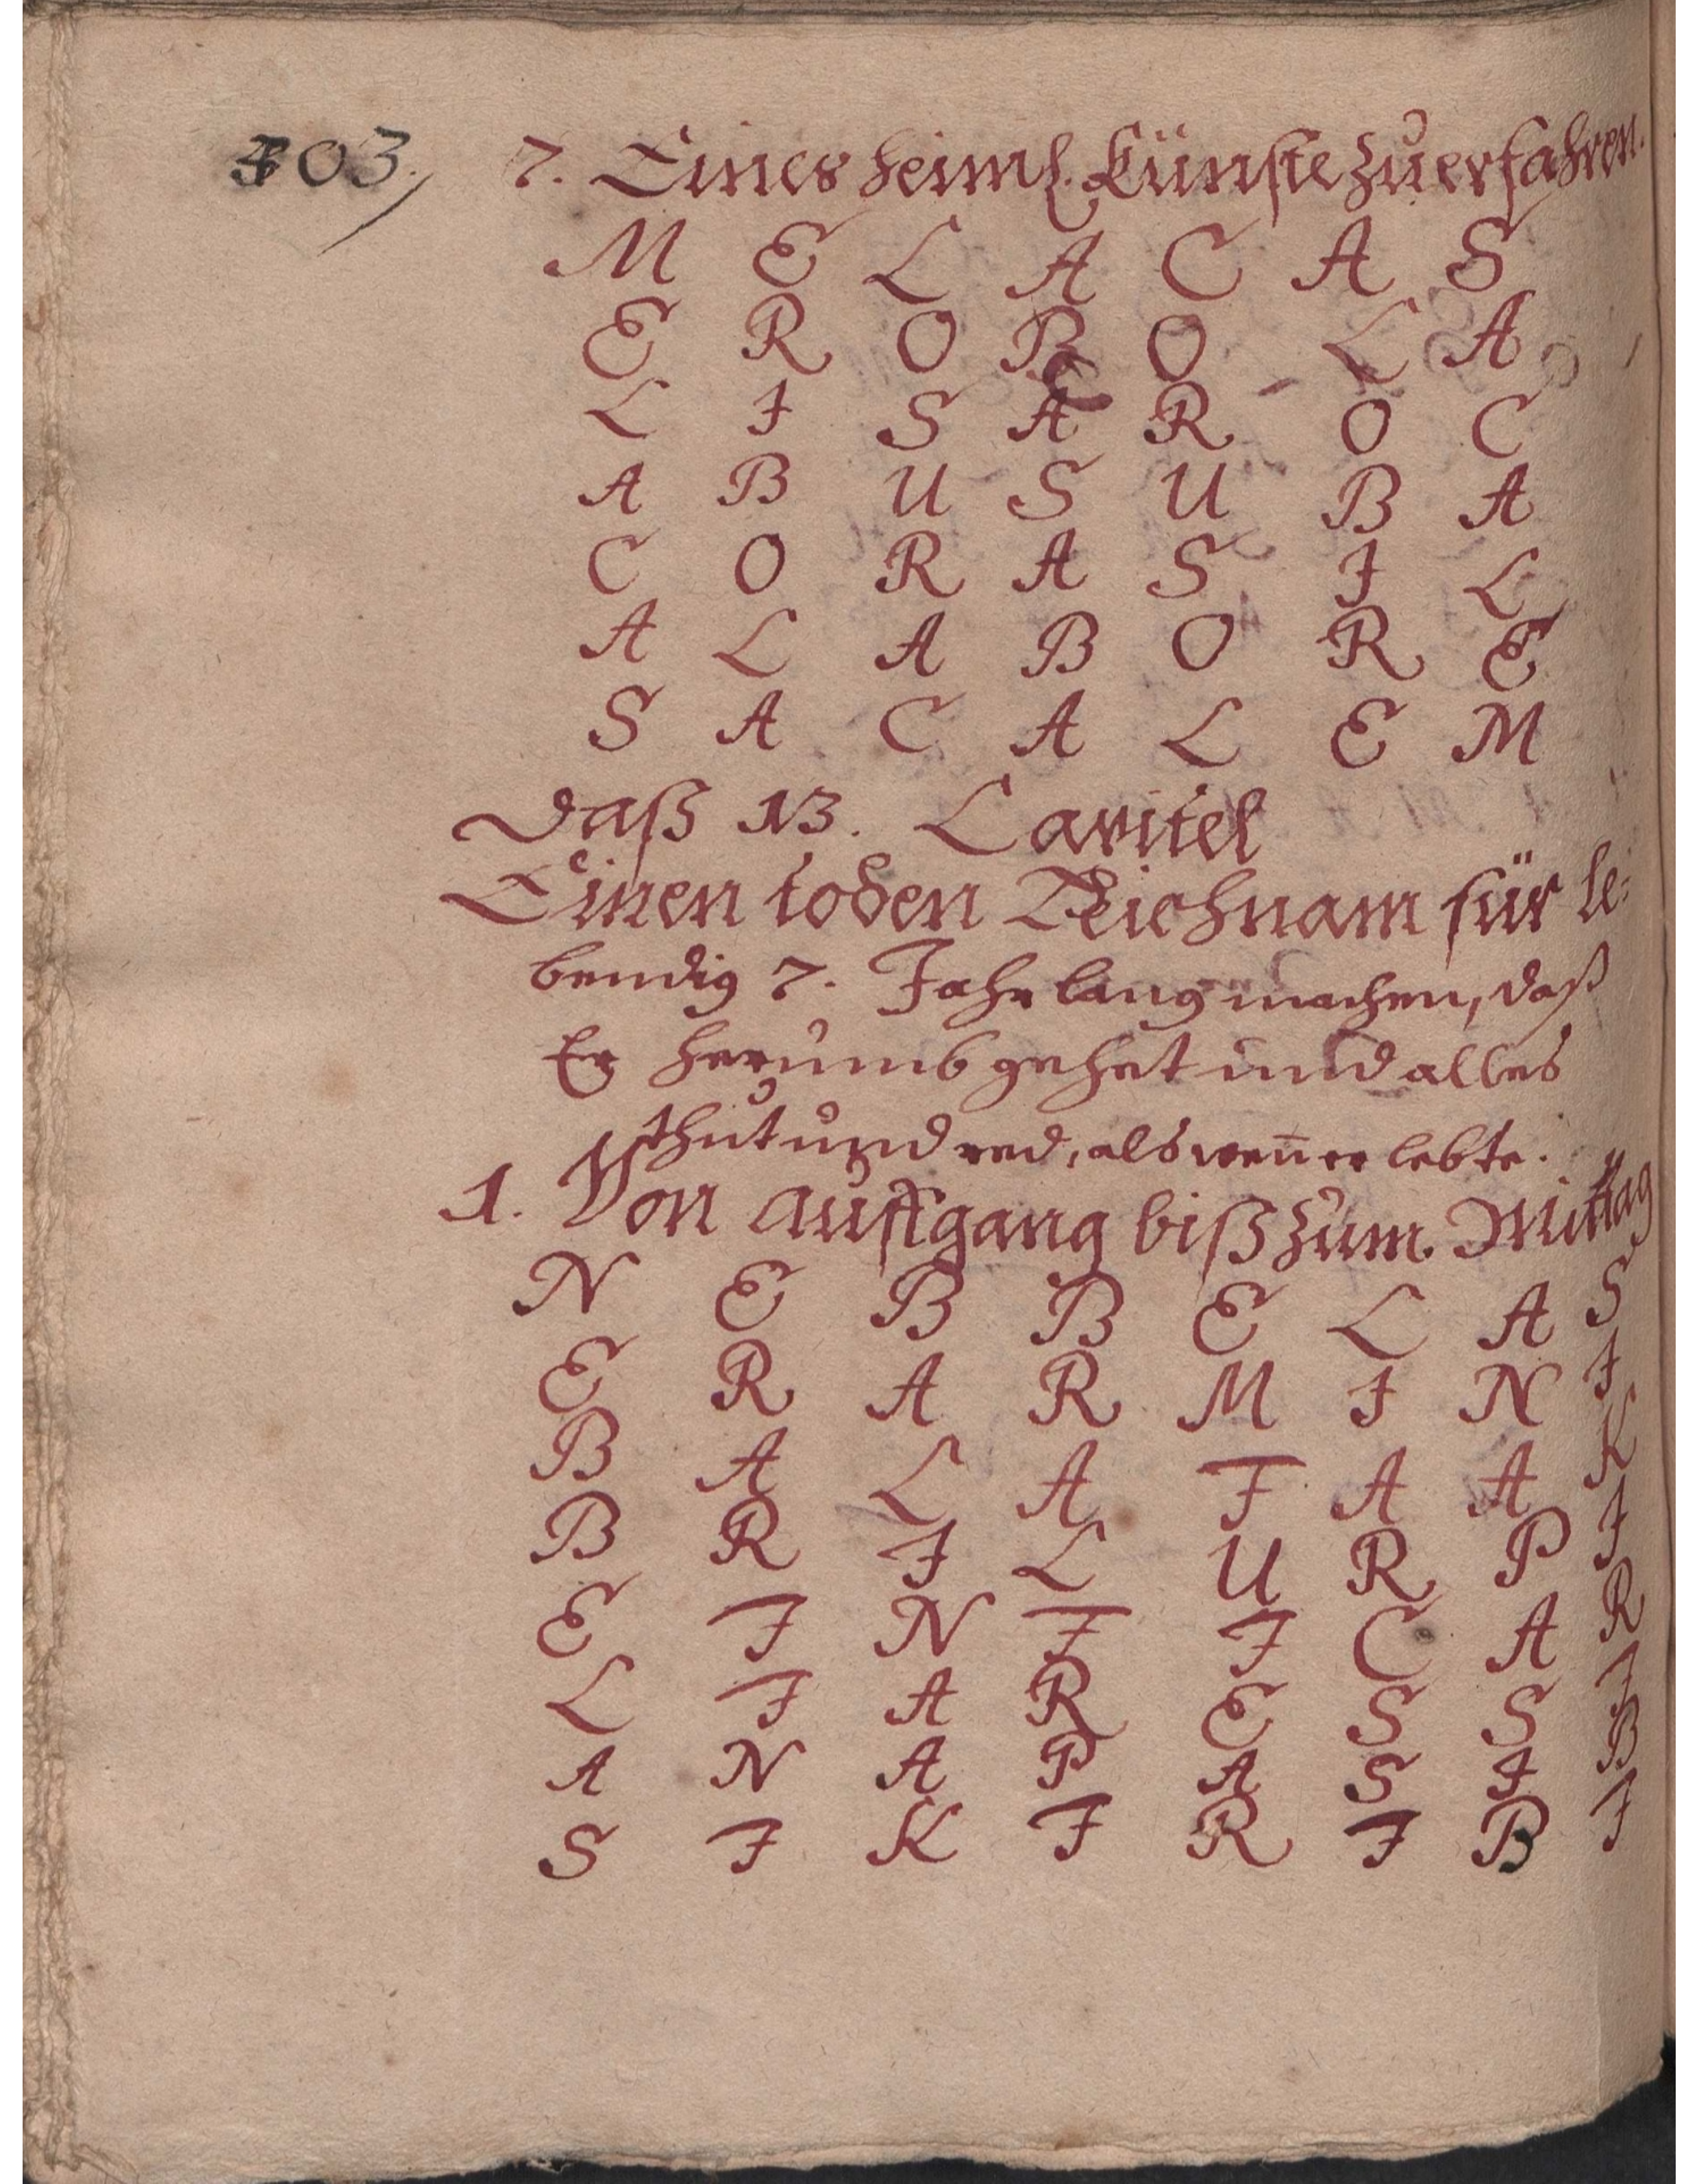 303.
7. Eines heiml. Künste zu erfahren.
M E L A C A S
E R O B O L A
L I S A R O C
A B U S U B A
C O R A S I L
A L A B O R E
S A C A L E M
Daß 13. Capitel
Einen toden Leichnam für le-
bendig 7. Jahr lang machen, daß
Er herumb gehet und alles
thut und red, als weñ er lebte.
1. Von auffgang biß zum Mittag
N E B B E L A S
E R A R M I N I
B A L A I A A K
B R I L U R P I
E I N I I C A R
L I A R E S S I
A N A P A S I B
S I K I R I B I